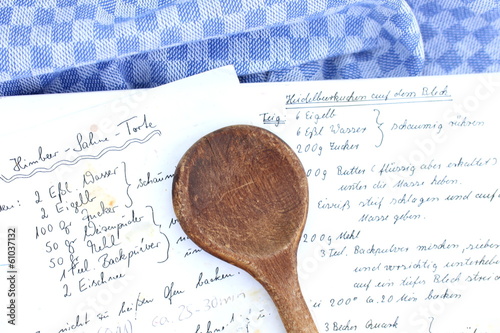 Himbeer-Sahne-Torte
2 Eßl. Wasser
2 Eigelb
100 gr Zucker
50 gr Weizenpuder
50 gr Mehl
1 Teel. Backpulver
2 Eischnee
nicht zu heißen Ofen backen.
ca. 25-30 min
Heidelbeerkuchen auf dem Blech
Teig: 6 Eigelb
6 Eßl Wasser
200 g Zucker
schaumig rühren
200 g Butter (flüssig aber erkaltet)
unter die Masse heben.
Eiweiß steif schlagen und auf
Masse geben.
200 g Mehl
3 Teel. Backpulver mischen, sieben
und vorsichtig unterheben
auf ein Blech
200° ca. 20 Min backen
3 Becher Quark
Adobe Stock | #61037132